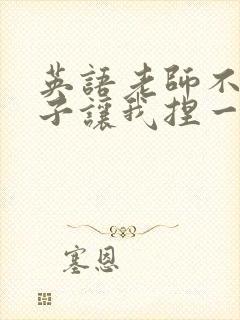 英語老師不
子讓我捏一
塞恩